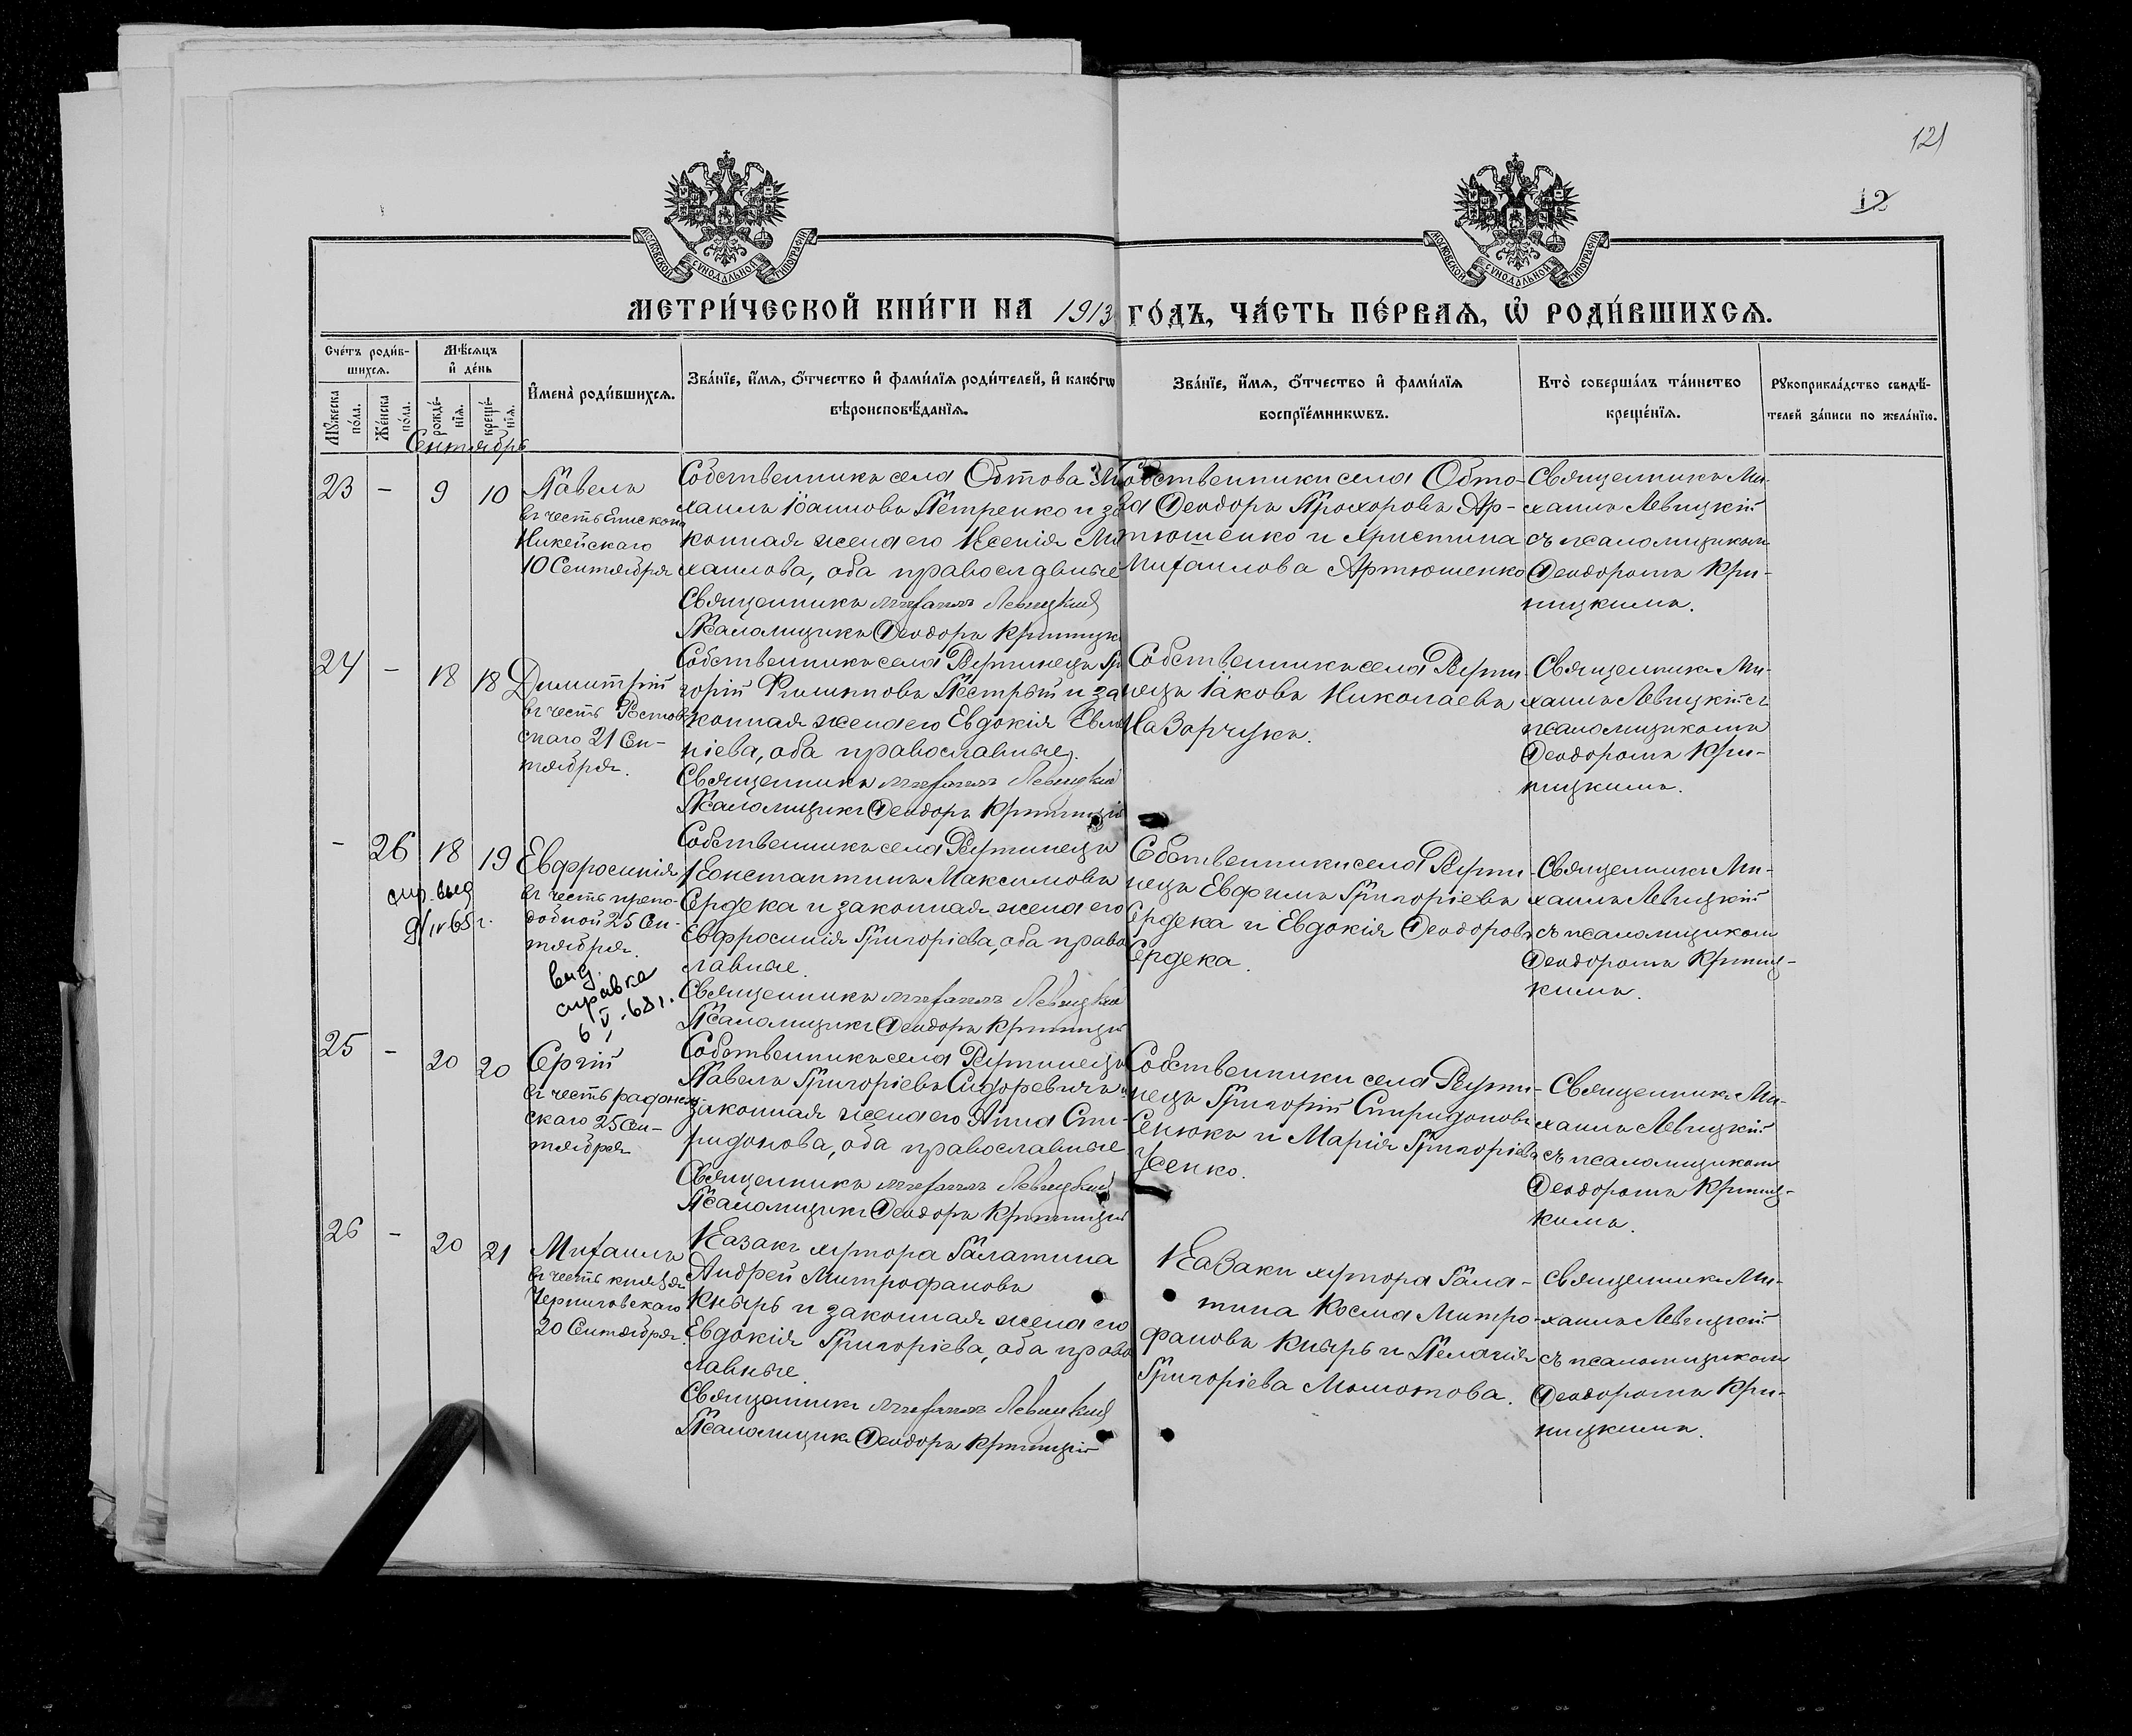 121
12
МОСКОВСКОЙ СУНОДАЛЬНОЙ ТИПОГРАФІИ
МОСКОВСКОЙ СУНОДАЛЬНОЙ ТИПОГРАФІИ
МЕТРИ́ЧЕСКОЙ КНИ́ГИ НА 1913 ГО́ДЪ, ЧА́СТЬ ПЕ́РВАѦ, Ѡ РОДИ́ВШИХСѦ.
Сче́тъ роди́в-
шихсѧ.
Мѣ́сѧцъ
и де́нь
Мꙋ́жеска по́ла.
Же́нска по́ла.
рожде́-
нїѧ.
креще́-
нїѧ.
Имена̀ роди́вшихсѧ.
Зва́нїе, и́мѧ, о́тчество и фами́лїѧ роди́телей, и како́гѡ
вѣроисповѣ́данїѧ.
Зва́нїе, и́мѧ, о́тчество и фами́лїѧ
воспрїе́мникѡвъ.
Кто̀ соверша́лъ та́инство
креще́нїѧ.
Рꙋкоприкла́дство свидѣ́-
телей за́писи по жела́нїю.
Сентябрь
23 - 9 10
Павелъ
въ честь Епископа
Никейскаго
10 Сентября
Собственникъ села Обтова Ми
хаилъ Іоанновъ Петренко и за
конная жена его Ксенія Ми
хаилова, оба православные
Священникъ Михаилъ Левицкій
Псаломщикъ Ѳеодоръ Криницкі
Собственники села Обто-
ва Ѳеодоръ Прохоровъ Ар-
тюшенко и Христина
Михаилова Артюшенко
Священникъ Ми-
хаилъ Левицкій
съ псаломщикомъ
Ѳеодоромъ Кри-
ницкимъ.
24 - 18 18
Димитрій
въ честь Ростов
скаго 21 Сен-
тября.
Собственникъ села Рептинецъ Гри
горій Филипповъ Пестрый и за
конная жена его Евдокія Евла
піева, оба православные.
Священникъ Михаилъ Левицкій
Псаломщикъ Ѳеодоръ Криницкій
Собственникъ села Репти-
нецъ Іаковъ Николаевъ
Назарчукъ.
Священникъ Ми-
хаилъ Левицкій съ
псаломщикомъ
Ѳеодоромъ Кри-
ницкимъ.
- 26 18 19
спр. выд
9/IV 65 г.
Евфросинія
въ честь препо-
добной 25 Сен-
тября.
выд.
справка
6/V-68 г.
Собственникъ села Рептинецъ
Константинъ Максимовъ
Сердека и законная жена его
Евфросинія Григоріева, оба право
славные.
Священникъ Михаилъ Левицкій
Псаломщикъ Ѳеодоръ Криницкій
Собственники села Репти-
нецъ Евфимъ Григоріевъ
Сердека и Евдокія Ѳеодорова
Сердека.
Священникъ Ми-
хаилъ Левицкій
съ псаломщикомъ
Ѳеодоромъ Криниц-
кимъ.
25 - 20 20
Сергій
въ честь радонеж
скаго 25 Сен-
тября
Собственникъ села Рептинецъ
Павелъ Григоріевъ Сидоревичъ и
законная жена его Анна Спи-
ридонова, оба православные
Священникъ Михаилъ Левицкій
Псаломщикъ Ѳеодоръ Криницкій
Собственники села Репти-
нецъ Григорій Спиридоновъ
Сенюкъ и Марія Григоріева
Усенко.
Священникъ Ми-
хаилъ Левицкій
съ псаломщикомъ
Ѳеодоромъ Криниц-
кимъ.
26 - 20 21
Михаилъ
въ честь князя
Черниговскаго
20 Сентября.
Казакъ хутора Галатина
Андрей Митрофановъ
Кнырь и законная жена его
Евдокія Григоріева, оба право
славные.
Священникъ Михаилъ Левицкій
Псаломщикъ Ѳеодоръ Криницкій
Казаки хутора Гала-
тина Косма Митро-
фановъ Кнырь и Пелагія
Григоріева Молотова.
Священникъ Ми-
хаилъ Левицкій
съ псаломщикомъ
Ѳеодоромъ Кри-
ницкимъ.